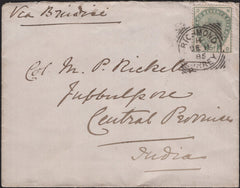 Via Brindisi
RICHMOND
85
Col M. P. Ricketts
Jubbulpore
Central Provinces
India